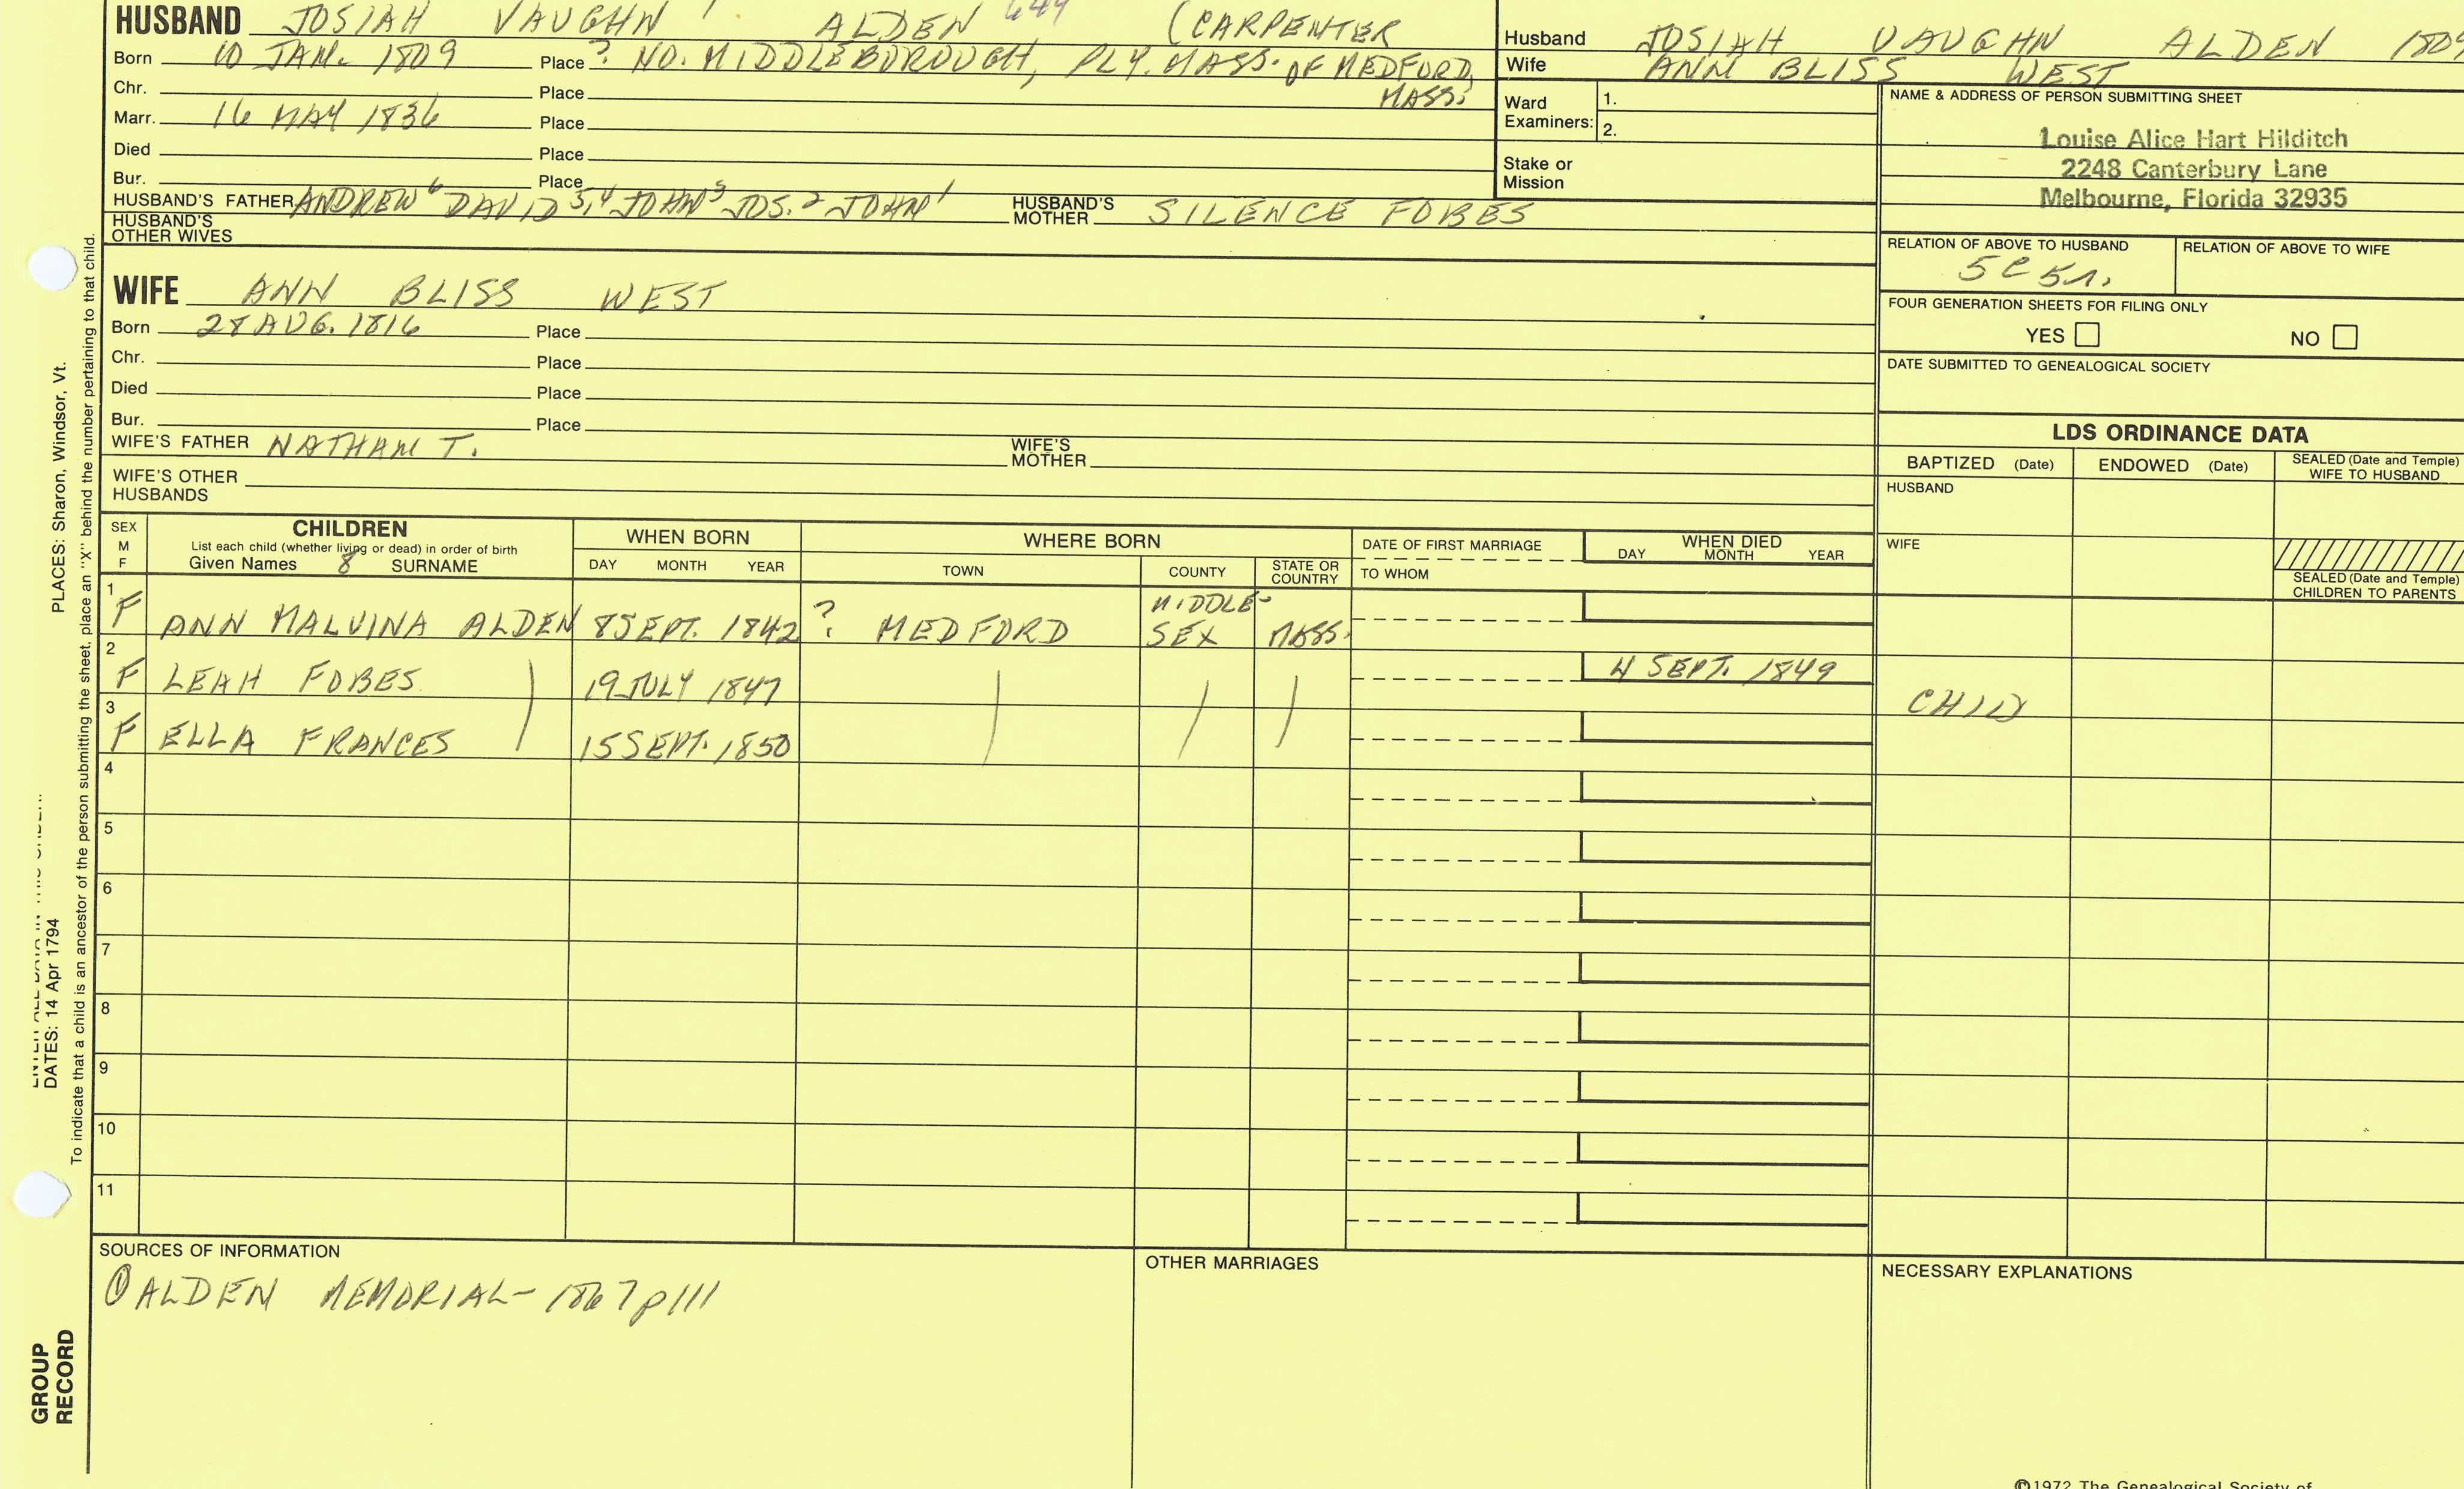 HUSBAND JOSIAH VAUGHN ALDEN 644 (CARPENTER
Born 10 JAN. 1809 Place ? NO. MIDDLEBOROUGH, PLY. MASS. OF MEDFORD, MASS.
Chr. Place
Marr. 16 MAY 1836 Place
Died Place
Bur. Place
HUSBAND'S FATHER ANDREW 6 DAVID 5,4 JOHN 3 JOS. 2 JOHN 1 HUSBAND'S MOTHER SILENCE FOBES
HUSBAND'S OTHER WIVES
WIFE ANN BLISS WEST
Born 28 AUG. 1816 Place
Chr. Place
Died Place
Bur. Place
WIFE'S FATHER NATHAN T. WIFE'S MOTHER
WIFE'S OTHER HUSBANDS
Husband JOSIAH VAUGHN ALDEN 1809
Wife ANN BLISS WEST
Ward Examiners: 1.
2.
Stake or Mission
NAME & ADDRESS OF PERSON SUBMITTING SHEET
Louise Alice Hart Hilditch
2248 Canterbury Lane
Melbourne, Florida 32935
RELATION OF ABOVE TO HUSBAND RELATION OF ABOVE TO WIFE
5C5R.
FOUR GENERATION SHEETS FOR FILING ONLY
YES NO
DATE SUBMITTED TO GENEALOGICAL SOCIETY
LDS ORDINANCE DATA
BAPTIZED (Date) ENDOWED (Date) SEALED (Date and Temple) WIFE TO HUSBAND
HUSBAND
WIFE
SEALED (Date and Temple) CHILDREN TO PARENTS
SEX M F CHILDREN WHEN BORN WHERE BORN DATE OF FIRST MARRIAGE WHEN DIED
List each child (whether living or dead) in order of birth
Given Names 8 SURNAME DAY MONTH YEAR TOWN COUNTY STATE OR COUNTRY TO WHOM DAY MONTH YEAR
1 F ANN MALVINA ALDEN 8 SEPT. 1842 ? MEDFORD MIDDLE-SEX MASS.
2 F LEAH FOBES 19 JULY 1847 4 SEPT. 1849 CHILD
3 F ELLA FRANCES 15 SEPT. 1850
4
5
6
7
8
9
10
11
SOURCES OF INFORMATION
① ALDEN MEMORIAL - 1867 p111
OTHER MARRIAGES
NECESSARY EXPLANATIONS
©1972 The Genealogical Society of
PLACES: Sharon, Windsor, Vt.
DATES: 14 Apr 1794
To indicate that a child is an ancestor of the person submitting the sheet, place an "X" behind the number pertaining to that child.
GROUP RECORD